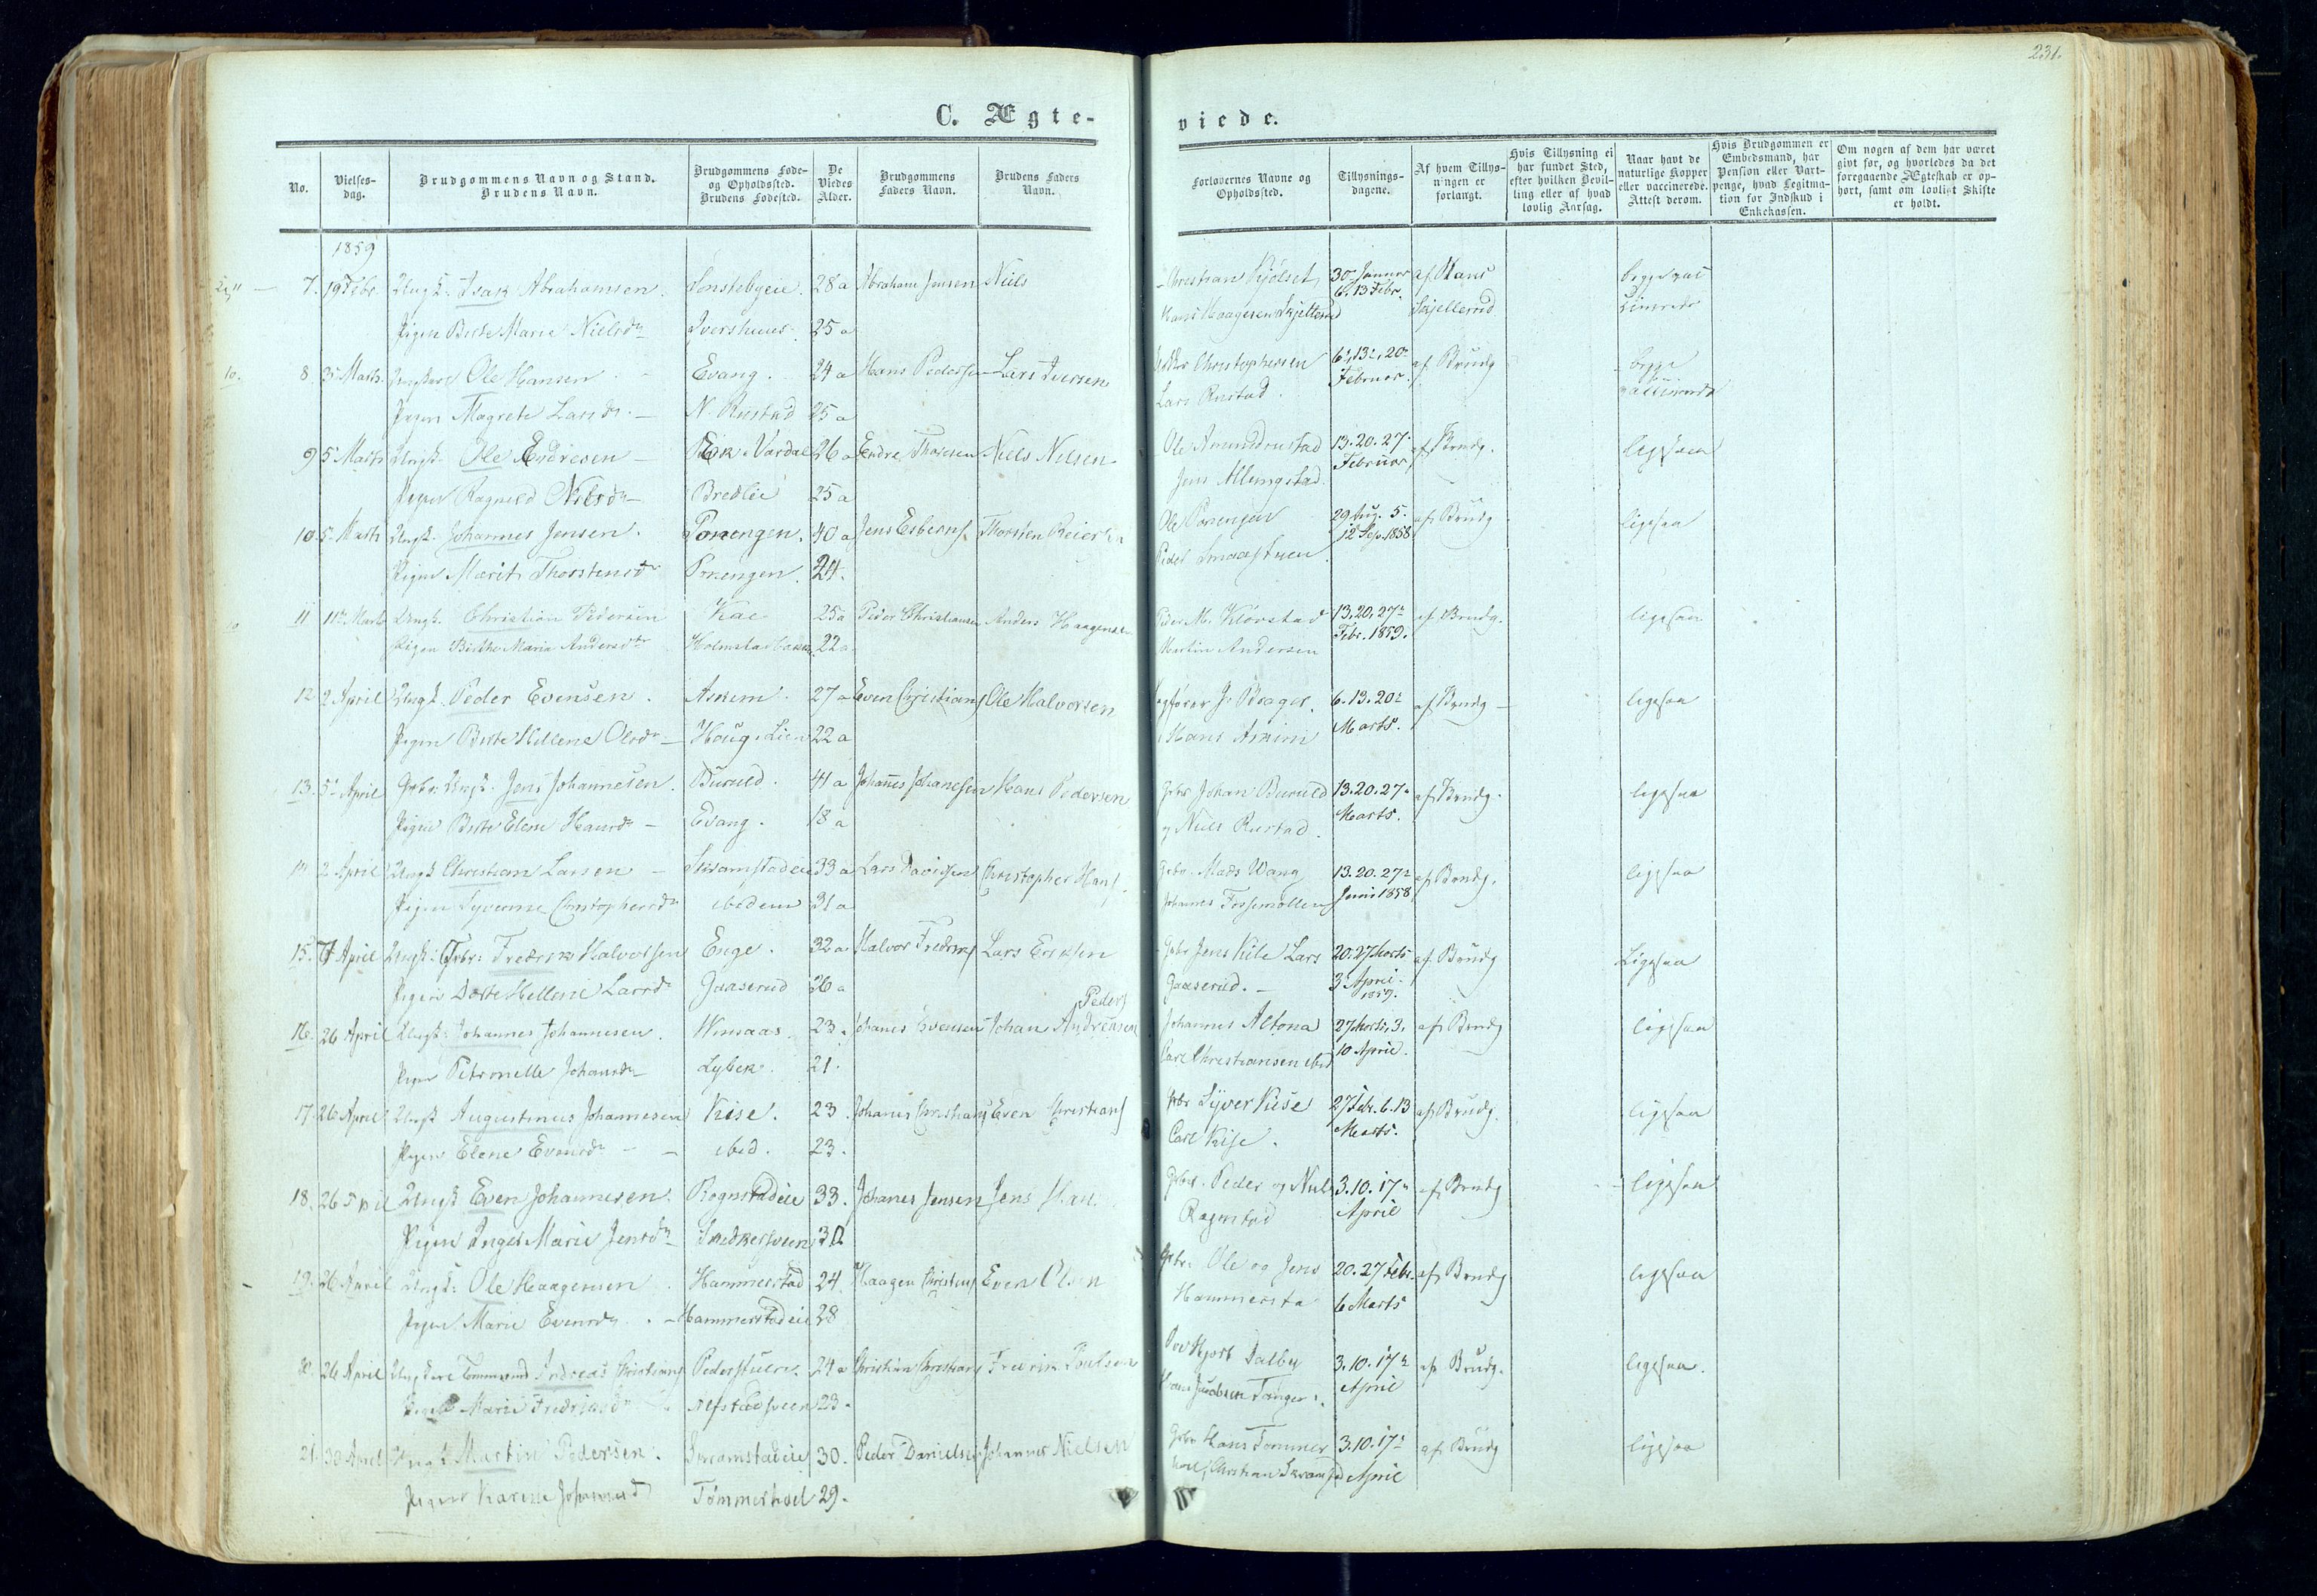 231.
C. Ægte-
viede.
No.
Vielses-
dag.
Brudgommens Navn og Stand.
Brudens Navn.
Brudgommens Føde-
og Opholdssted.
Brudens Fødested.
De
Viedes
Alder.
Brudgommens
Faders Navn.
Brudens Faders
Navn.
Forlovernes Navne og
Opholdssted.
Tillysnings-
dagene.
Af hvem Tillys-
ningen er
forlangt.
Hvis Tillysning ei
har fundet Sted,
efter hvilken Bevil-
ling eller af hvad
lovlig Aarsag.
Naar havt de
naturlige Kopper
eller vaccinerede.
Attest derom.
Hvis Brudgommen er
Embedsmand, har
Pension eller Vart-
penge, hvad Legitima-
tion for Indskud i
Enkekassen.
Om nogen af dem har været
givt før, og hvorledes da det
foregaaende Ægteskab er op-
hørt, samt om lovligt Skifte
er holdt.
1859
7. 19 Febr. Ungk. Isak Abrahamsen. Sonstebyeie. 28 a Abraham Jensen Niels Christian Kjølset 30 Januar af Hans begge vac
6. 13 Febr. Skjellerud
Pigen Birte Marie Nielsdr Ivershuus. 25 a Hans Haagensen Skjellerud
10. 8. 5 Marts. Ungkarl Ole Hansen Evang. 24 a Hans Pedersen Lars Iversen Christophersen 6, 13, 20 af Brudg begge
Februar. vaccinerede
Pigen Magrete Larsdr. N. Rustad 25 a Lars Rustad.
9 5 Marts Ungk. Ole Endresen Eek. Vardal 26 a Endre Thoresen Niels Nilsen Ole Amundrustad 13. 20. 27. Februar af Brudg. ligesaa
Pigen Ragnild Nilsdr Bredlie 25 a Jens Alungstad
10. 5 Marts Ungk. Johannes Jensen. Porengen. 40 a Jens Esberns. Thorsten Reiers Ole Porengen 29 Aug. 5. 12 Sep. 1858 af Brudg ligesaa
Pigen Marit Thorstensdr Porengen. 24. Peder Smaastuen
11 11 Marts Ungk. Christian Pedersen Kae 25 a Peder Christiansen Anders Haagensen Peder M. Kløvstad 13. 20. 27 Febr. 1859. af Brudg. ligesaa
Pigen Birthe Maria Andersdtr Holmstadbakken 22 a. Martin Andersen
12 2 April Ungk. Peder Evensen. Askem. 27 a Even Christians Ole Halvorsen J. Prager. 6. 13. 20 Marts. af Brudg ligesaa
Pigen Birte Hellene Olsdr Houg. Lien 22 a Hans Askim
13. 5 April Grbr. Ungk. Jens Johannesen. Buruld. 41 a Johannes Johanesen Hans Pedersen Grbr Johan Buruld 13. 20. 27. Marts. af Brudg. ligesaa
Pigen Birte Elene Hansdr Evang. 18 a og Niels Rustad.
14 2 April Ungk Christian Larsen Skramstadeie 33 a Lars Davidsen Christopher Hans. Grbr. Mads Wang 13. 20. 27 Juni 1858 af Brudg. ligesaa
Pigen Syverine Christophersdr ibidem 31 a Johannes Fossemøllen
15. 7 April Ungk. Grbr. Fredrik Halvorsen Enge. 32 a. Halvor Fredriks Lars Eriksen Grbr Jens Kile Lars 20. 27 Marts 3 April. 1859. af Brudg Ligesaa
Pigen Dorte Hellene Larsdr Gaaserud 26 a Gaaserud.
16. 26 April Ungk. Johannes Johannesen. 23. Johanes Evensen Johan Peders Andresen Johannes Altona 27 Marts, 3. 10 April. af Brudg ligesaa
Pigen Petronelle Johansdr Lybek. 21. Carl Christiansen ibid
17. 26 April Ungk Augustinus Johannesen Kise. 23. Johanes Christians Even Christians Grbr Syver Kise 27 Febr. 6. 13 Marts. af Brudg. ligesaa
Pigen Elene Evensdr ibid. 23. Carl Kise.
18. 26 Ungk Even Johannesen. Rognstadeie 33. Johanes Jensen Jens Grbr. Peder og Niels 3. 10. 17 April af Brudg ligesaa
Pigen Inger Marie Jensdr 30 Rognstad
19. 26 April Ungk. Ole Haagensen Hammerstad 24. Haagen Christens Even Olsen Grbr. Ole og Jens 20. 27 Febr. 6 Marts af Brudg ligesaa
Pigen Marie Evensdr. Hammerstadeie 28 Hammersta
20. 26 April Ungkarl Andreas Christians Pederstuen. 24 a Christian Christians Fredrik Poulsen Hjort Dalby 3. 10. 17 April af Brudg. ligesaa.
Pigen Marie Fredriksdr Alfstadsveen 23. Hans Jacobsen Tanger.
21. 30 April Ungk. Martin Pedersen. Skramstadeie 30. Peder Danielsen Johannes Nielsen Grbr Hans Tømmer 3. 10. 17 April af Brudg ligesaa
Pigen Karine Johannesd Tømmerhoel 29. hoel, Christian Skramstad